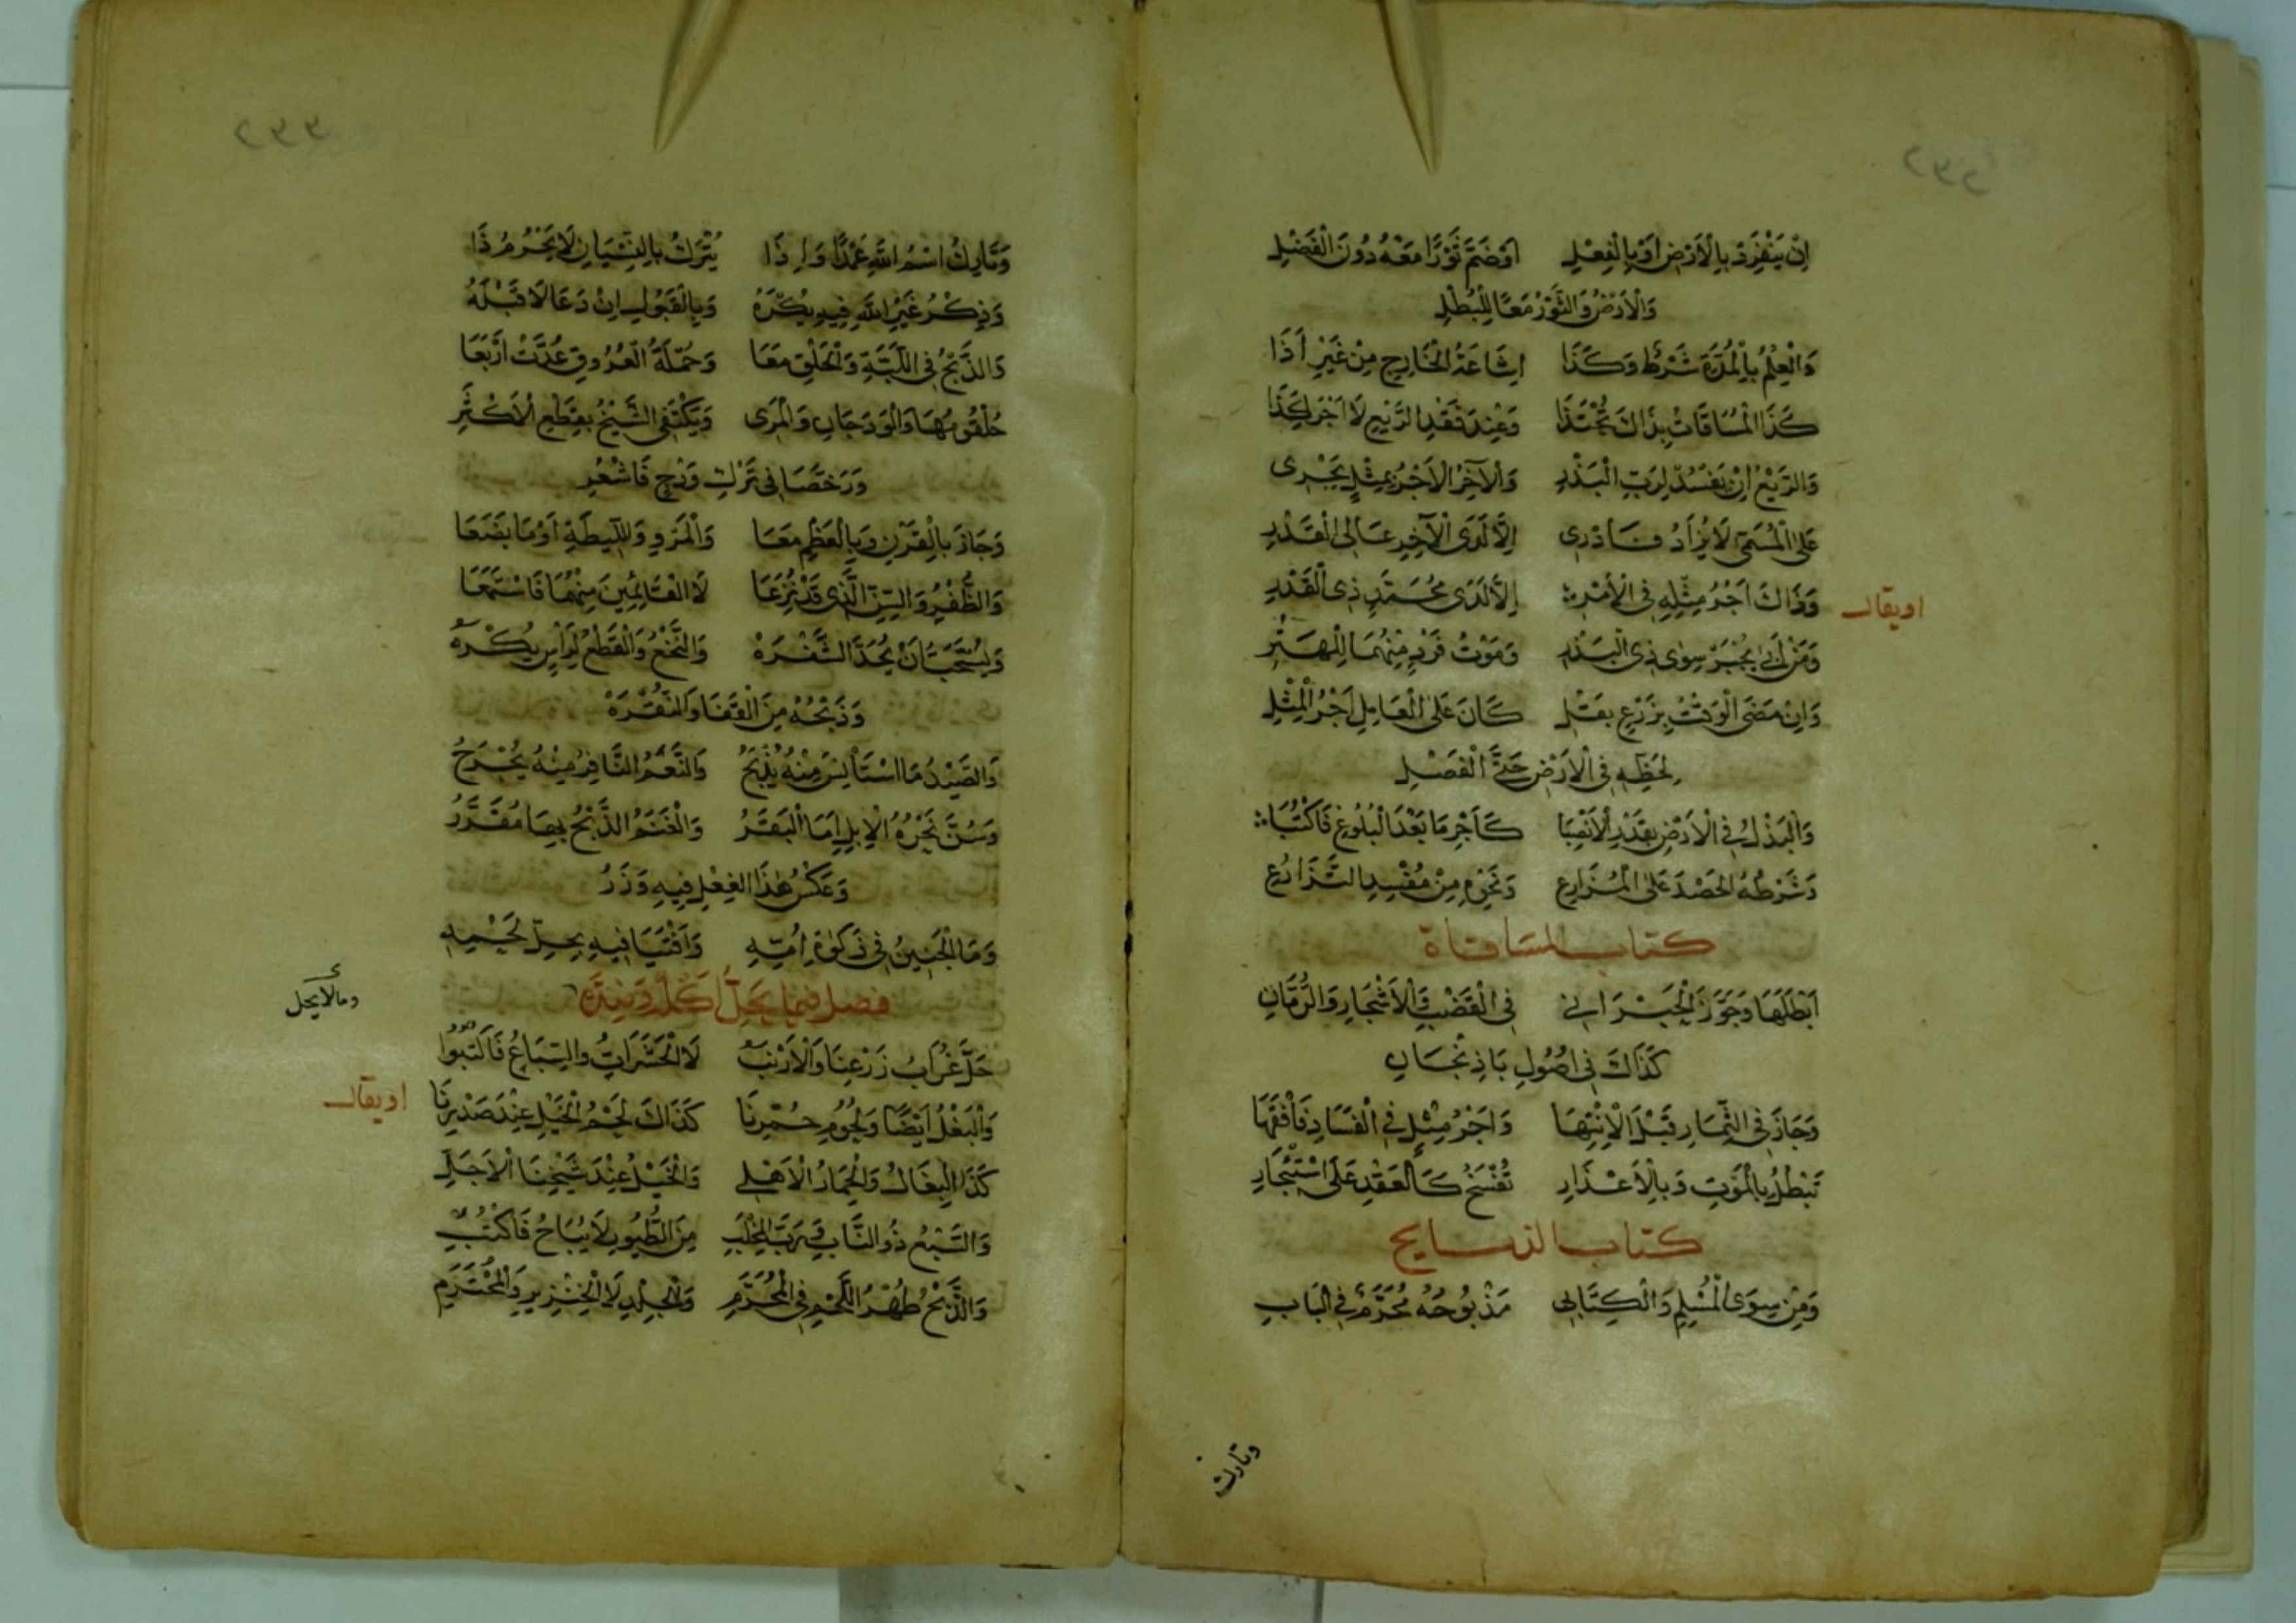 اِنْ يَنْفَرِدْ بِالْاَرْضِ اَوْ بِالْفِعْلِ اَوْ ضَمَّ ثَوْرًا مَعْهُ دُونَ الْفَضْلِ
وَالْاَرْضُ وَالثَّوْرُ مَعًا لِلْبُطْلِ
وَالْعِلْمُ بِالْمُدَّةِ شَرْطٌ وَكَذَا اِشَاعَةُ الْخَارِجِ مِنْ غَيْرِ اَذَا
كَذَا الْمُسَاقَاتُ بِذَاكَ تُحْتَذَا وَعِنْدَ فَقْدِ الرَّيْعِ لَا اَجْرَ كَذَا
وَالرَّيْعُ اِنْ تَفْسُدْ لِرَبِّ الْبَذْرِ وَالْآخَرُ الْاَجْرُ بِمِثْلٍ يَجْرِى
عَلَى الْمُسَمَّى لَا يُزَادُ فَادْرِى اِلَّا لَدَى الْآخِرِ عَالِى الْقَدْرِ
اويقال وَذَاكَ اَجْرُ مِثْلِهِ فِى الْاَمْرِ اِلَّا لَدَى مُحَمَّدٍ ذِى الْقَدْرِ
وَمَنْ اَبَى يُجْبَرْ سِوٰى ذِى الْبَذْرِ وَمَوْتُ فَرْدٍ مِنْهُمَا لِلْهَتْرِ
وَاِنْ مَضَى الْوَقْتُ بِزَرْعٍ بَقْلِ كَانَ عَلَى الْعَامِلِ اَجْرُ الْمِثْلِ
لِحَظِّهِ فِى الْاَرْضِ حَتَّى الْفَصْلِ
وَالْبَذْلُ فِى الْاَرْضِ بِقَدْرِ الْاَنْصِبَا كَاَجْرِ مَا بَعْدَ الْبُلُوغِ فَاكْتُبَا
وَشَرْطُهُ الْحَصْدَ عَلَى الْمُزَارِعِ وَنَحْوِهِ مِنْ مُفْسِدِ التَّزَارُعِ
كتاب المساقاة
اَبْطَلَهَا وَجَوَّزَ الْحَبْرَانِ فِى الْقَضْبِ وَالْاَشْجَارِ وَالرُّمَّانِ
كَذَاكَ فِى اُصُولِ بَاذِنْجَانِ
وَجَازَ فِى الثِّمَارِ قَبْلَ الْاِنْتِهَا وَاَجْرُ مِثْلٍ فِى الْفَسَادِ فَافْقَهَا
تَبْطُلُ بِالْمَوْتِ وَبِالْاَعْذَارِ تُفْسَخُ كَالْعَقْدِ عَلَى اسْتِيْجَارِ
كتاب الذبايح
وَمِنْ سِوَى الْمُسْلِمِ وَالْكِتَابِى مَذْبُوحُهُ مُحَرَّمٌ فِى الْبَابِ
وتارك
وَتَارِكُ اسْمِ اللّٰهِ عَمْدًا وَاِذَا يُتْرَكُ بِالنِّسْيَانِ لَا يَحْرُمُ ذَا
وَذِكْرُ غَيْرِ اللّٰهِ فِيهِ يُكْرَهُ وَبِالْقَبُولِ اِنْ دَعَا لَا قَبْلَهُ
وَالذَّبْحُ فِى اللَّبَّةِ وَالْحَلْقِ مَعَا وَجُمْلَةُ الْعُرُوقِ عُدَّتْ اَرْبَعَا
حُلْقُومُهَا وَالْوَدَجَانِ وَالْمَرِى وَيَكْتَفِى الشَّيْخُ بِقَطْعِ الْاَكْثَرِ
وَرَخَّصَا فِى تَرْكِ وَدْجٍ فَاشْعُرِ
وَجَازَ بِالْقَرْنِ وَبِالْعَظْمِ مَعَا وَالْمَرْوِ وَاللِّيطَةِ اَوْ مَا بَضَعَا
وَالظُّفْرِ وَالسِّنِّ الَّذِى قَدْ نُزِعَا لَا الْقَائِمَيْنِ مِنْهُمَا فَاسْتَمِعَا
وَيُسْتَحَبُّ اَنْ يُحَدَّ الشَّفْرَهْ وَالنَّخْعُ وَالْقَطْعُ لِرَأْسٍ يُكْرَهُ
وَذَبْحُهُ مِنَ الْقَفَا وَالنُّقْرَهْ
وَالصَّيْدُ مَا اسْتَأْنَسَ مِنْهُ يُذْبَحُ وَالنَّعَمُ النَّافِرُ مِنْهُ يُجْرَحُ
وَسُنَّ نَحْرُهُ الْاِبِلَ اِمَّا الْبَقَرُ وَالْغَنَمُ الذَّبْحُ بِهَا مُقَرَّرُ
وَعَكْسُ هٰذَا الْفِعْلِ فِيهِ وَزَرُ
وَمَا الْجَنِينُ فِى ذَكٰوةِ اُمِّهِ وَاَفْتَيَا فِيهِ بِحِلِّ لَحْمِهِ
فصل فيما يحل اكله
ومالا يحل
حَلَّ غُرَابُ زَرْعِنَا وَالْاَرْنَبُ لَا الْحَشَرَاتُ وَالسِّبَاعُ فَاكْتُبُوا
وَالْبَغْلُ اَيْضًا وَلُحُومُ حُمْرِنَا كَذَاكَ لَحْمُ الْخَيْلِ عِنْدَ صَدْرِنَا اويقال
كَذَا الْبِغَالُ وَالْحِمَارُ الْاَهْلِى وَالْخَيْلُ عِنْدَ شَيْخِنَا الْاَجَلِّ
وَالسَّبُعُ ذُو النَّابِ وَرَبُّ الْمِخْلَبِ مِنَ الطُّيُورِ لَا يُبَاحُ فَاكْتُبِ
وَالذَّبْحُ طُهْرُ اللَّحْمِ فِى الْمُحَرَّمِ وَالْجِلْدِ لَا الْخِنْزِيرِ وَالْمُحْتَرَمِ